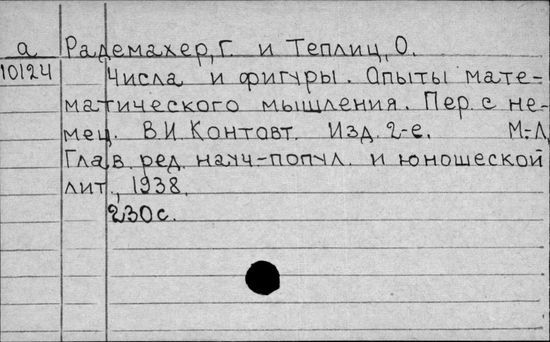 а Радемахер, Г. и Теплиц, О.
10124 Числа и фигуры. Опыты мате-
матического мышления. Пер. с не-
мец. В.И. Контовт. Изд. 2-е. М.-Л.,
Глав. ред. науч-попул. и юношеской
лит., 1938.
230 с.